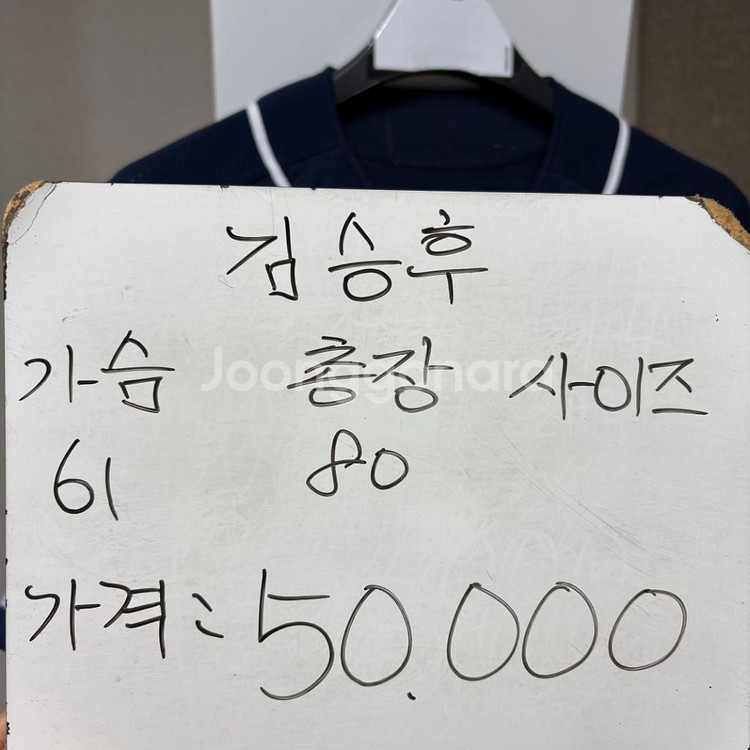 김승후
가슴 총장 사이즈
Joonggonara
61 80
가격: 50.000